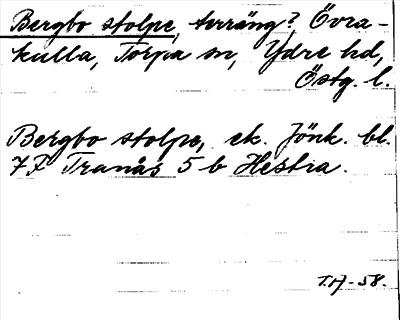 Bergbo stolpe, terräng? Övra-
kulla, Torpa sn, Ydre hd,
Östg. l.
Bergbo stolpe, ek. Jönk. bl.
7F Tranås 5 b Hestra.
T.H-58.